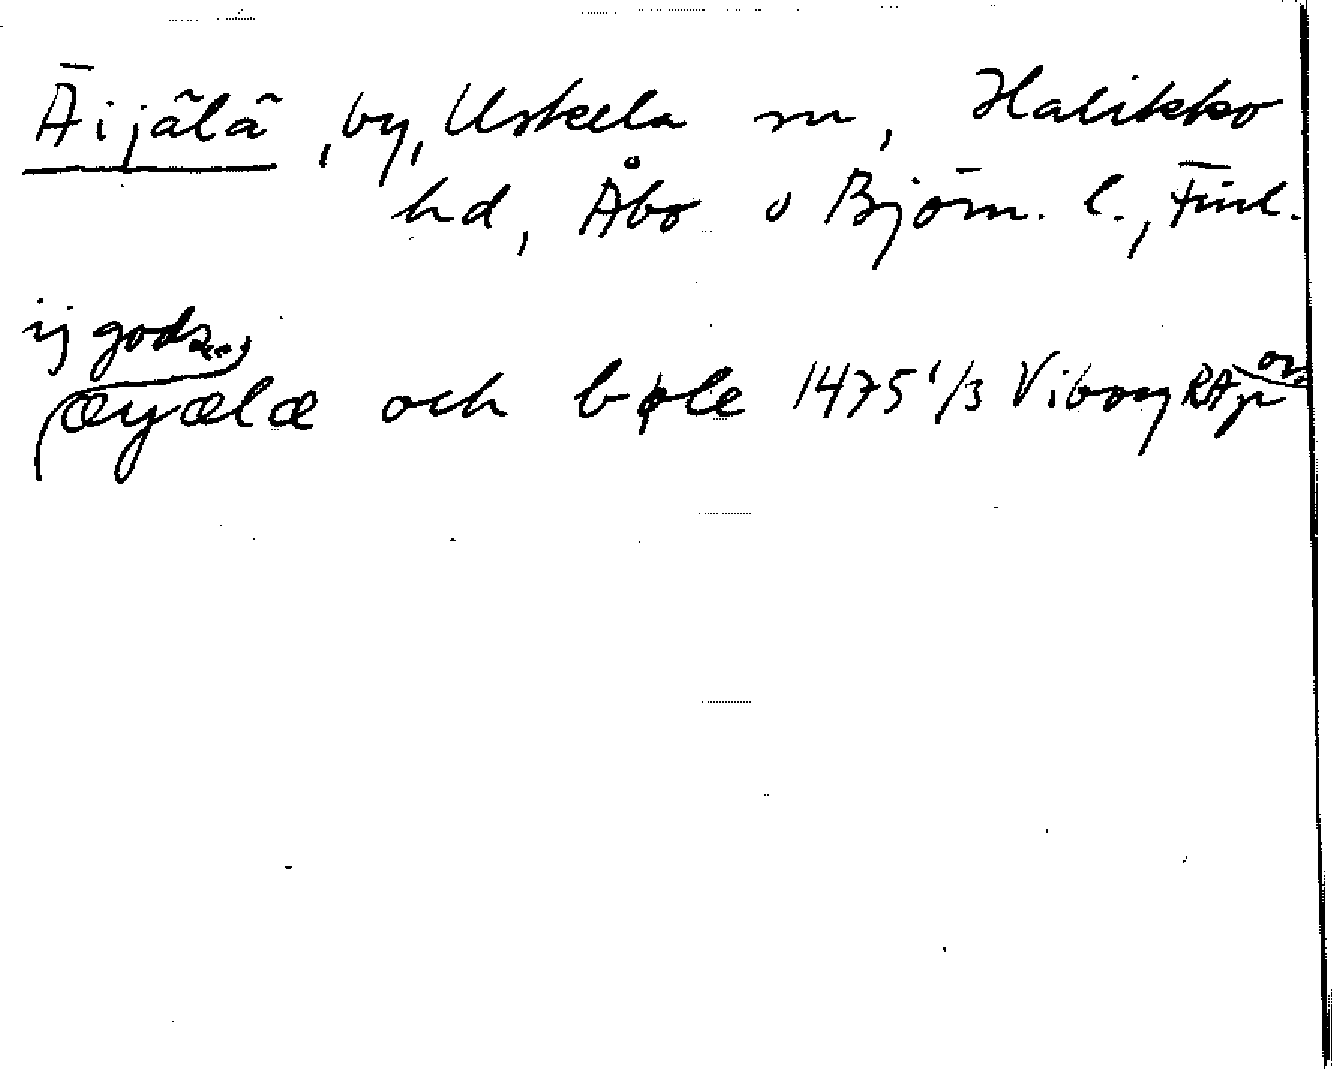 Äijälä, by, Uskela sn, Halikko
hd, Åbo o Björn. l., Finl.
ij gods...
æyælæ och bøle 1475 1/3 Viborg RAp or.